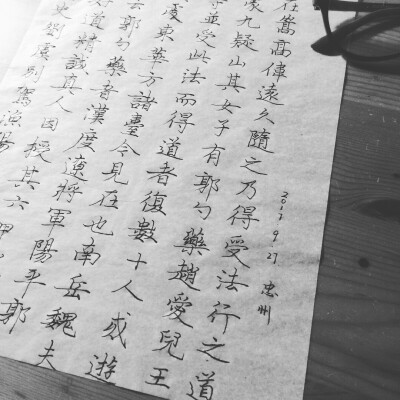 在嵩高偉遠久隨之乃得受法行之道
處九疑山其女子有郭勺藥趙愛兒王
等並受此法而得道者復數十人或遊
處東華方諸臺今見在也南岳魏夫
云郭勺藥者漢度遼將軍陽平郭
好道精誠真人因授其六甲
史劉虞別駕漁陽
2017 9 27 忠州